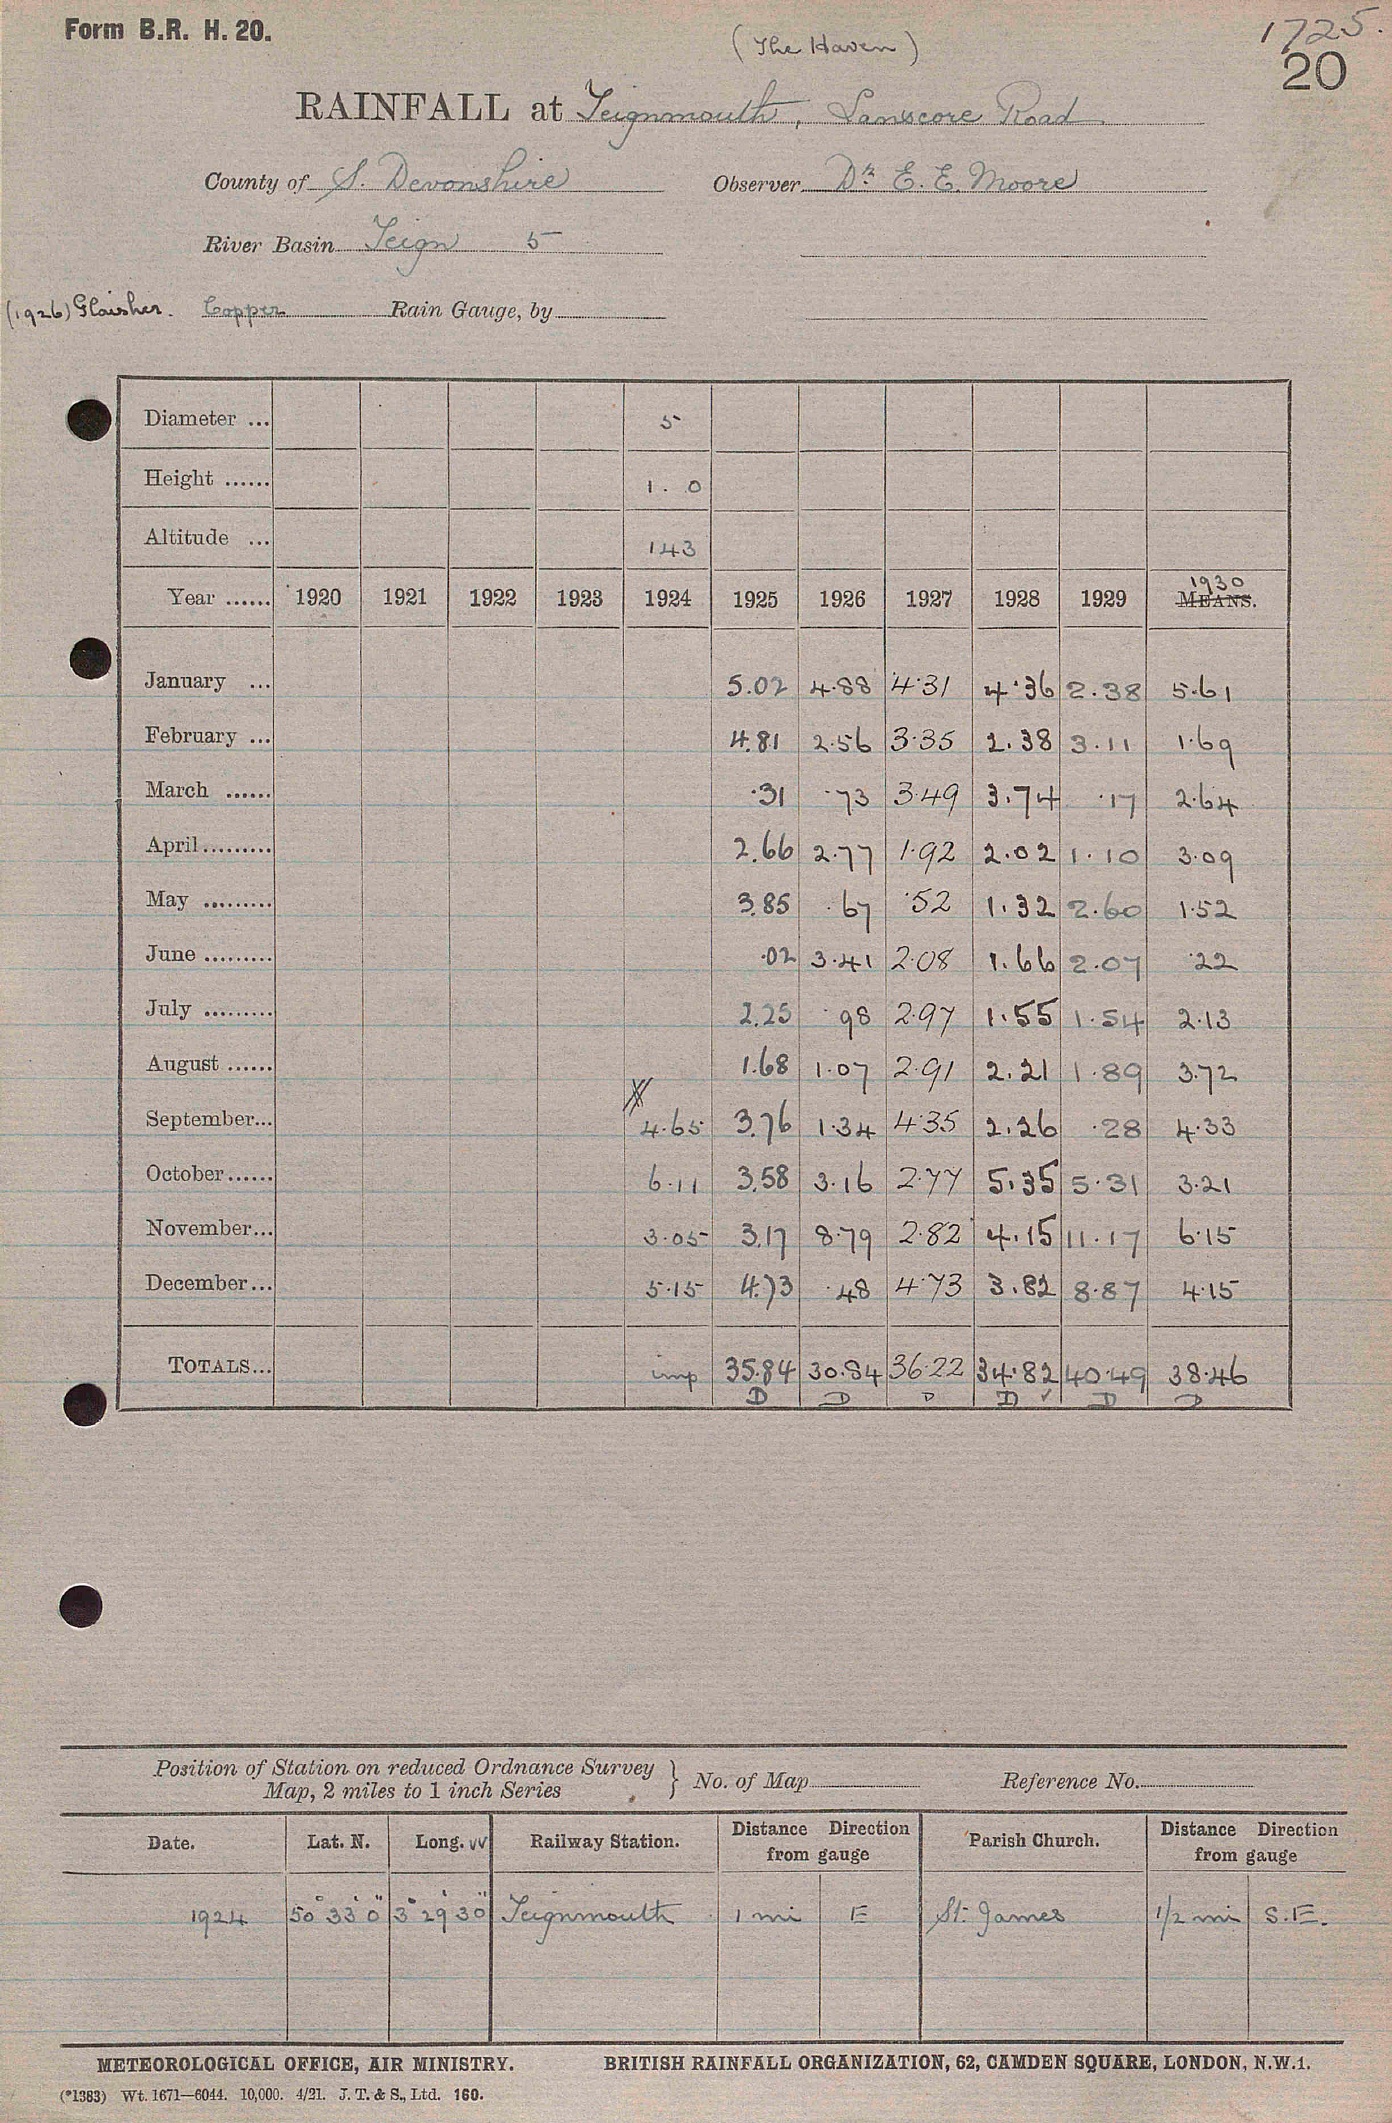 Form B.R. H. 20.
1725.
20
(The Haven)
RAINFALL at Teignmouth, Lanscore Road
County of S. Devonshire Observer Dr. E. E. Moore
River Basin Teign 5
(1926) Glaisher. Copper Rain Gauge, by
Diameter ... 5
Height ...... 1. 0
Altitude ... 143
1930
Year ...... 1920 1921 1922 1923 1924 1925 1926 1927 1928 1929 MEANS.
January ... 5.02 4.88 4.31 4.36 2.38 5.61
February ... 4.81 2.56 3.35 2.38 3.11 1.69
March ...... .31 .73 3.49 3.74 .17 2.64
April......... 2.66 2.77 1.92 2.02 1.10 3.09
May ......... 3.85 .67 .52 1.32 2.60 1.52
June ......... .02 3.41 2.08 1.66 2.07 .22
July ......... 2.25 .98 2.97 1.55 1.54 2.13
August ...... 1.68 1.07 2.91 2.21 1.89 3.72
September... 4.65 3.76 1.34 4.35 2.26 .28 4.33
October...... 6.11 3.58 3.16 2.77 5.35 5.31 3.21
November... 3.05 3.17 8.79 2.82 4.15 11.17 6.15
December... 5.15 4.73 .48 4.73 3.82 8.87 4.15
TOTALS... imp 35.84 30.84 36.22 34.82 40.49 38.46
D D D D ✓ D D
Position of Station on reduced Ordnance Survey
Map, 2 miles to 1 inch Series } No. of Map Reference No.
Date. Lat. N. Long. W Railway Station. Distance Direction from gauge Parish Church. Distance Direction from gauge
1924 50° 33' 0" 3° 29' 30" Teignmouth 1 mi E St. James 1/2 mi S.E.
METEOROLOGICAL OFFICE, AIR MINISTRY. BRITISH RAINFALL ORGANIZATION, 62, CAMDEN SQUARE, LONDON, N.W.1.
(*1383) Wt. 1671—6044. 10,000. 4/21. J. T. & S., Ltd. 160.